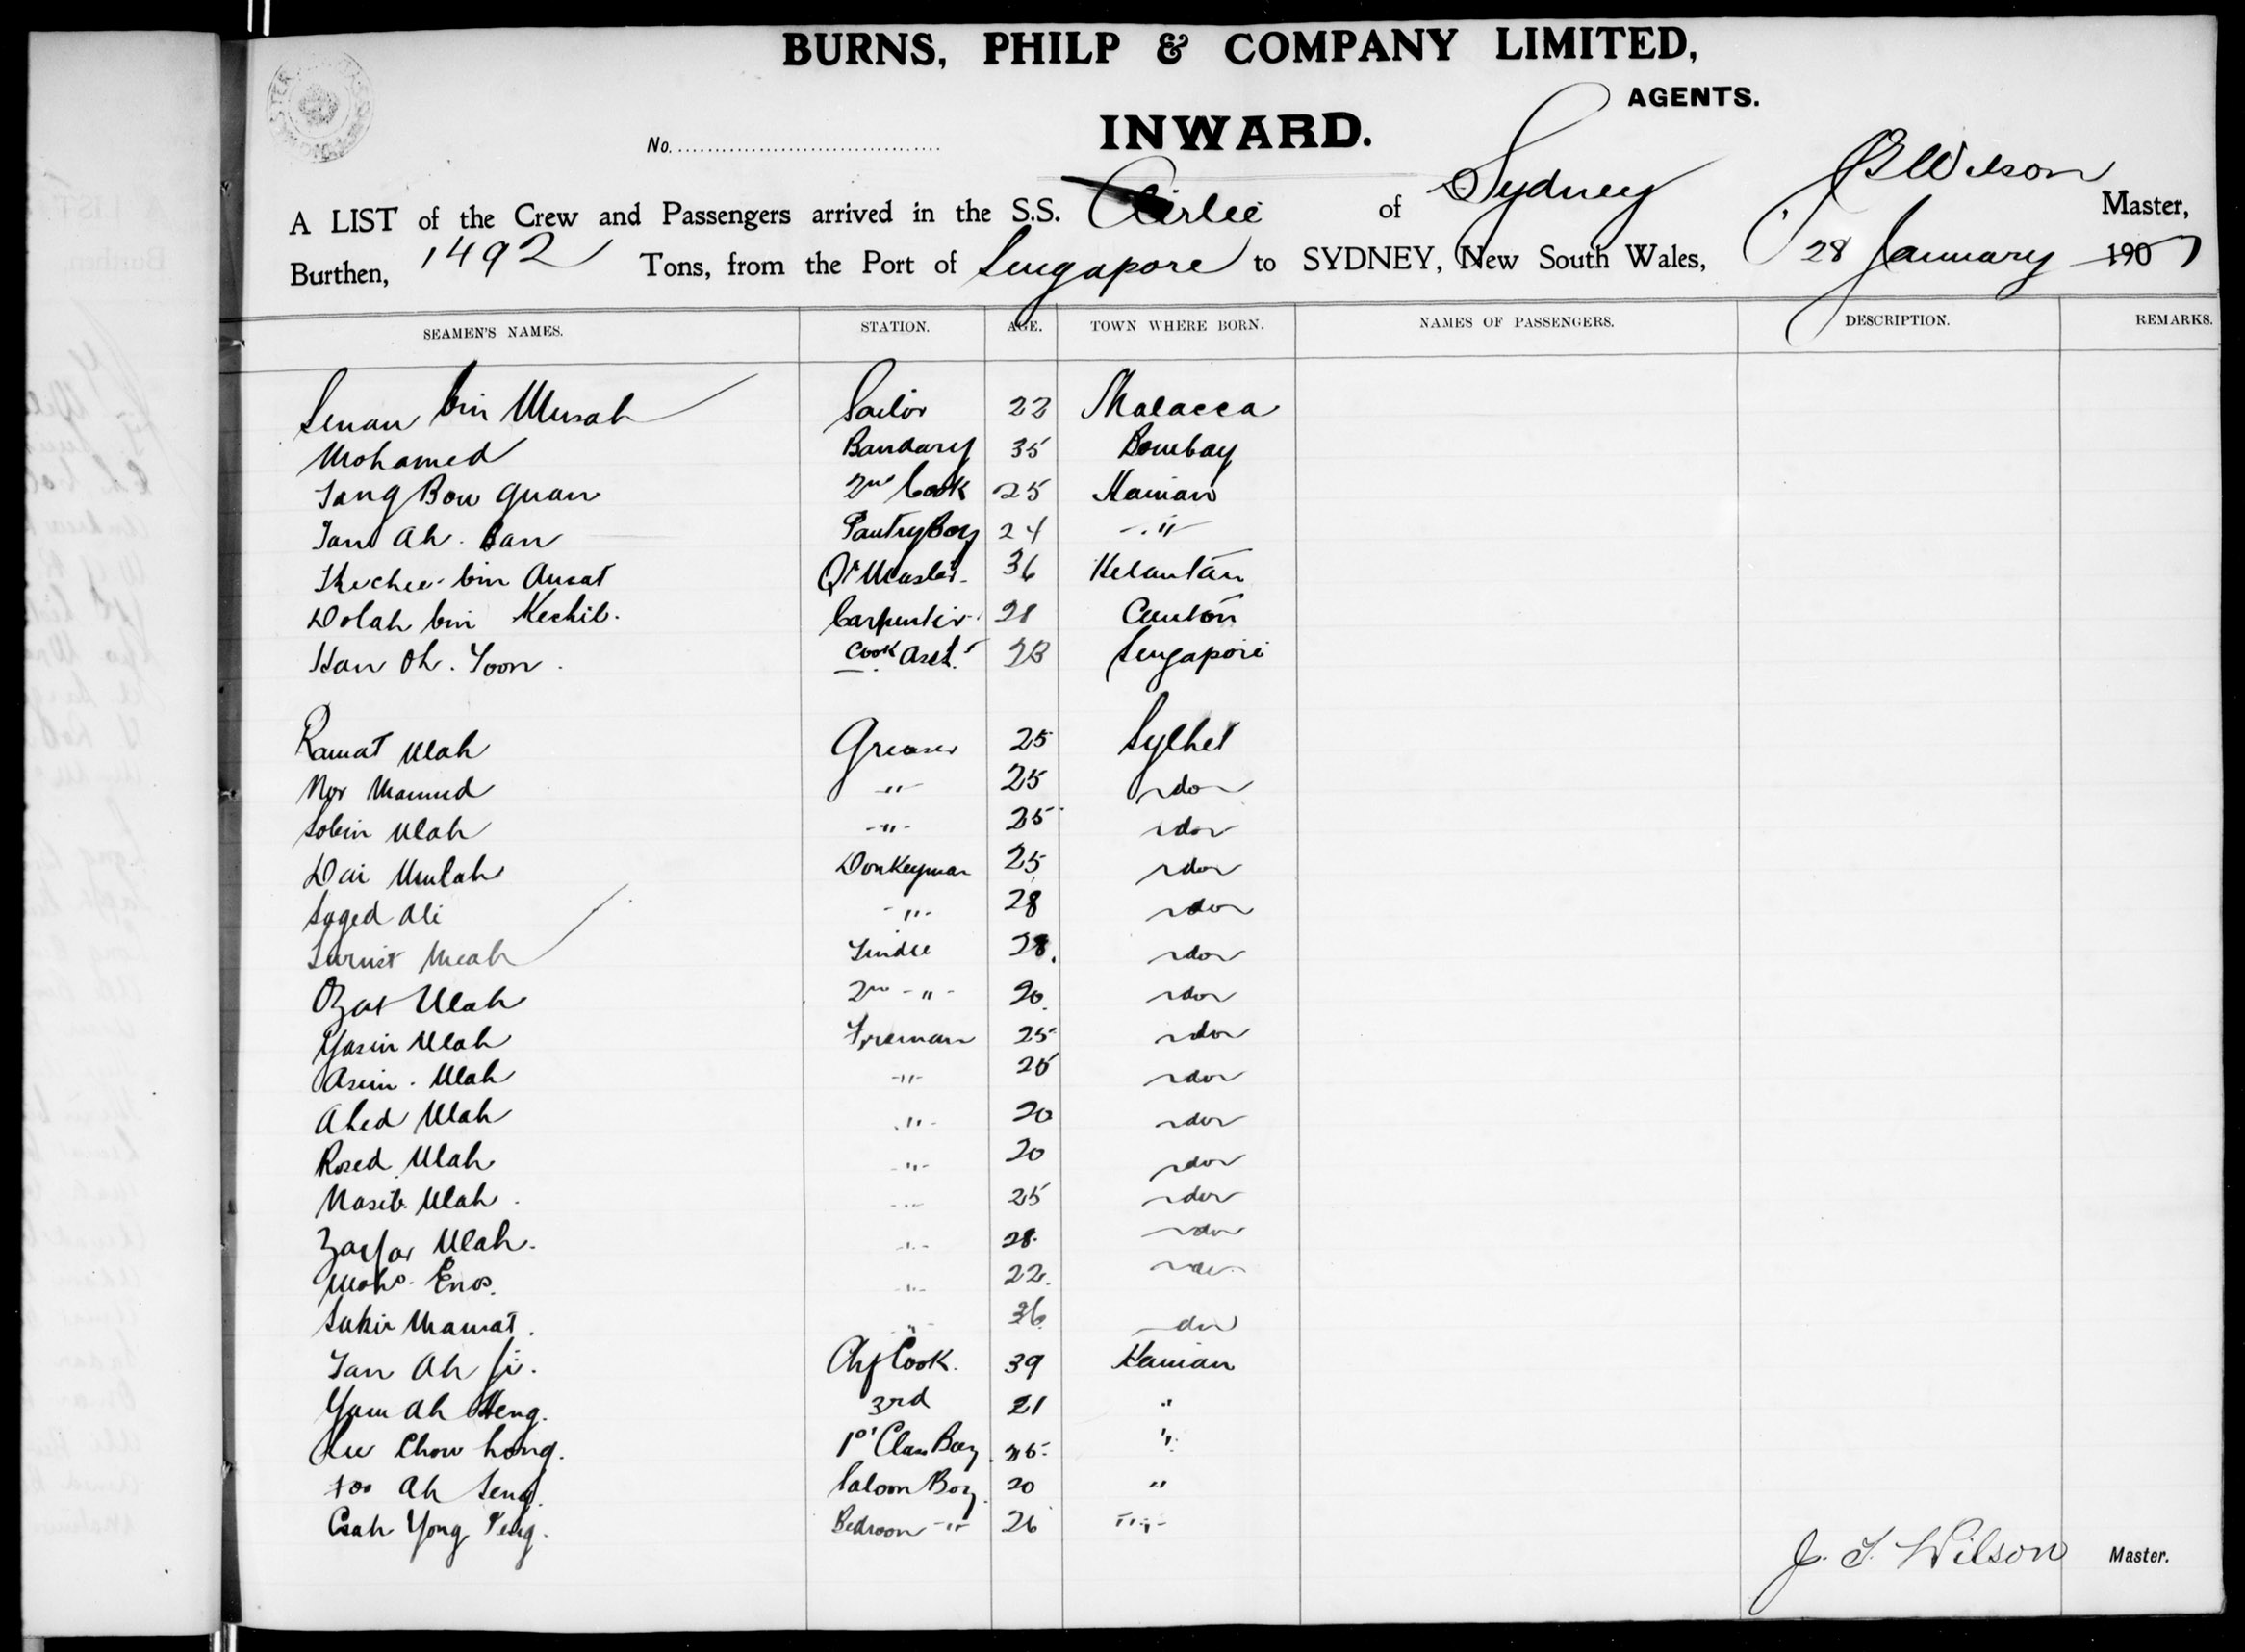 BURNS, PHILP & COMPANY LIMITED,
AGENTS.
INWARD.
No.
A LIST of the Crew and Passengers arrived in the S.S. Airlie of Sydney Wilson Master,
Burthen, 1492 Tons, from the Port of Singapore to SYDNEY, New South Wales, 28 January 1907
SEAMEN'S NAMES. STATION. AGE. TOWN WHERE BORN. NAMES OF PASSENGERS. DESCRIPTION. REMARKS.
Senan bin Musah Sailor 22 Malacca
Mohamed Bandary 35 Bombay
Tang Bow Guan 2nd Cook 25 Hainan
Tan Ah. Ban Pantry Boy 24 "
bin Ausat Qr Master 36 Kelantan
Dolah bin Kechil. Carpenter 28 Canton
Han Oh. Yoon. Cook Asst. 23 Singapore
Ramat Ulah Greaser 25 Sylhet
Nor Mamud " 25 do
Sobin Ulah " 25 do
Dai Mulah Donkeyman 25 do
Syed Ali " 28 do
Meah Tindle 28. do
Ozat Ulah 2nd " 20. do
Yasin Ulah Fireman 25 do
Asim. Ulah " 25 do
Ahed Ulah " 20 do
Rosed Ulah " 20 do
Nasib. Ulah. " 25 do
Zaffar Ulah. " 28. do
Mohd. Enos. " 22. do
Sakir Mamat. " 36. do
Tan Ah Ji. Chf Cook. 39 Hainan
Yam Ah Heng. 3rd 21 "
Lee Chow Long. 1st Class Boy "
Foo Ah Seng. Saloon Boy. 20 "
Yong Peng. Bedroom " 26 "
J. T. Wilson Master.